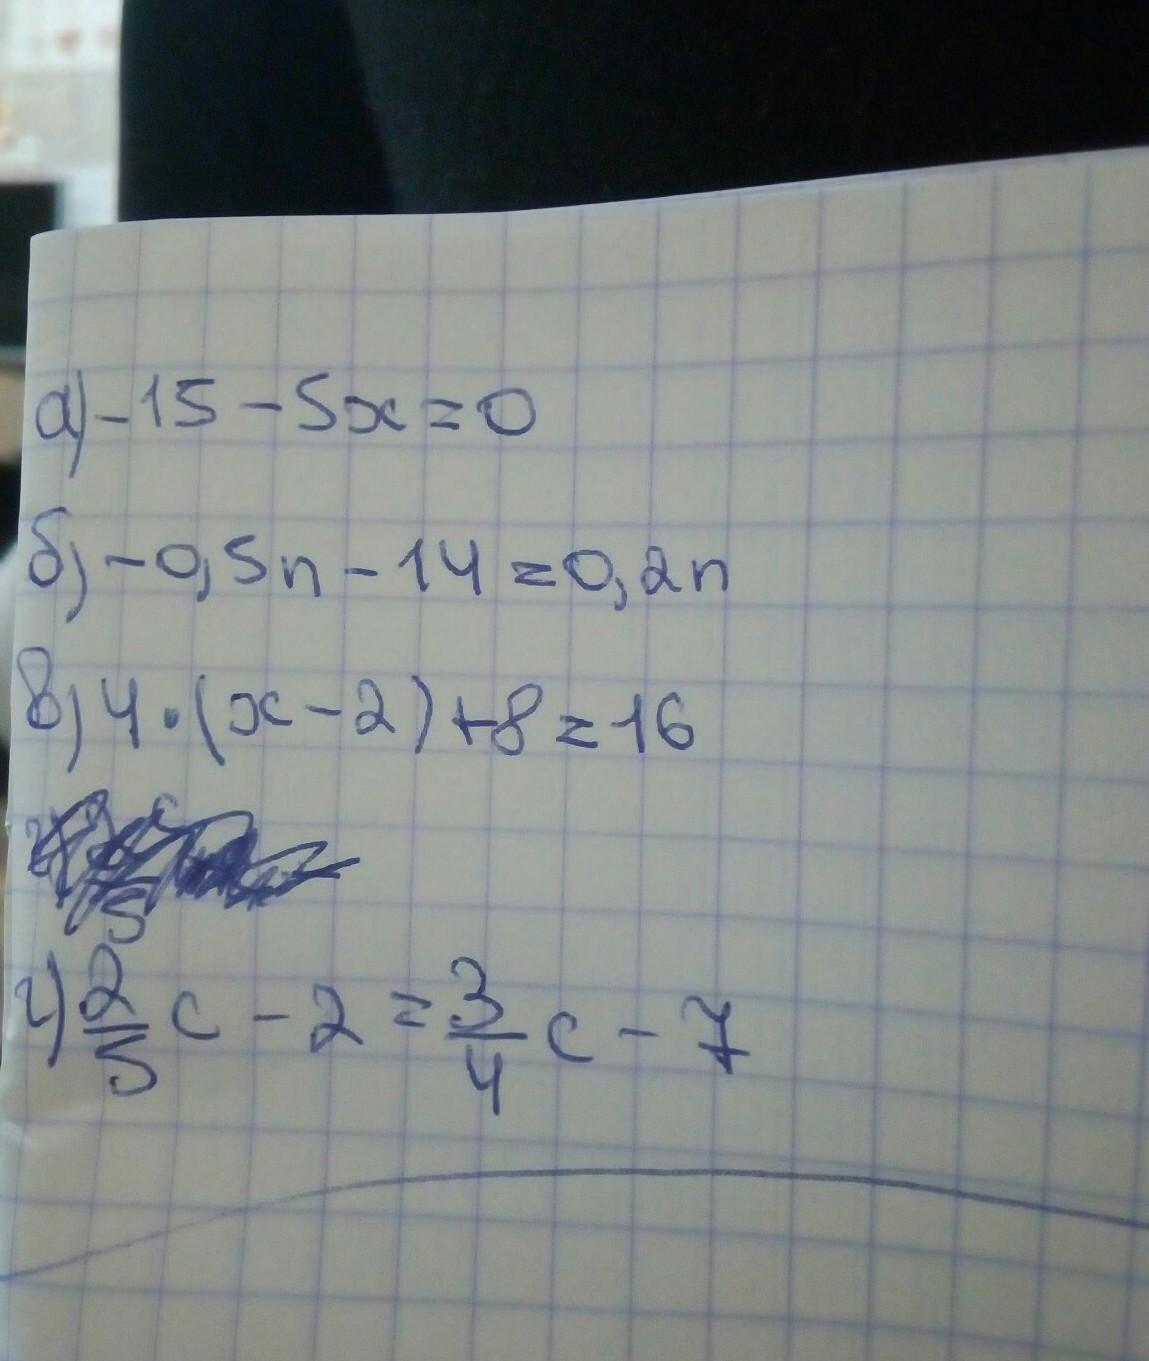 а) -15 - 5x = 0
б) -0,5n - 14 = 0,2n
в) 4 · (x - 2) + 8 = 16
г) 2/5 c - 2 = 3/4 c - 7